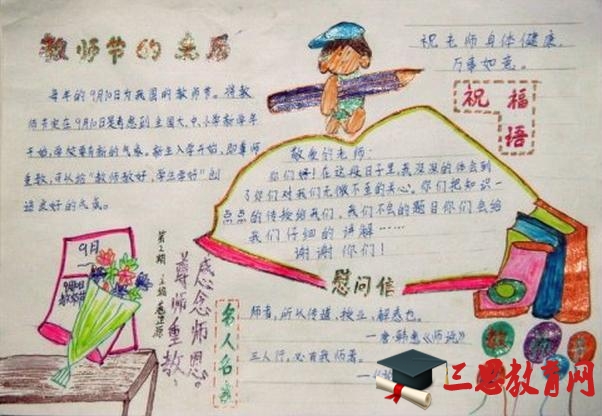 教师节的来历
每年的9月10日为我国的教师节。将教
师节定在9月10日是考虑到全国大、中、小学新学年
开始,学校要有新的气象。新生入学开始,即尊师
重教,可以给“教师教好,学生学好”创
造良好的气氛。
祝老师身体健康,
万事如意。
祝福
语
敬爱的老师:
你们好!在这段日子里我深深的体会到
了你们对我们无微不至的关心。你们把知识一
点点的传授给我们,我们不会的题目你们会给
我们仔细的讲解……
谢谢你们!
慰问信
9月
第2期
主编
感念师恩。
尊师重教,
名人名言
师者,所以传道、授业、解惑也。
—唐·韩愈《师说》
三人行,必有我师焉。
三思教育网